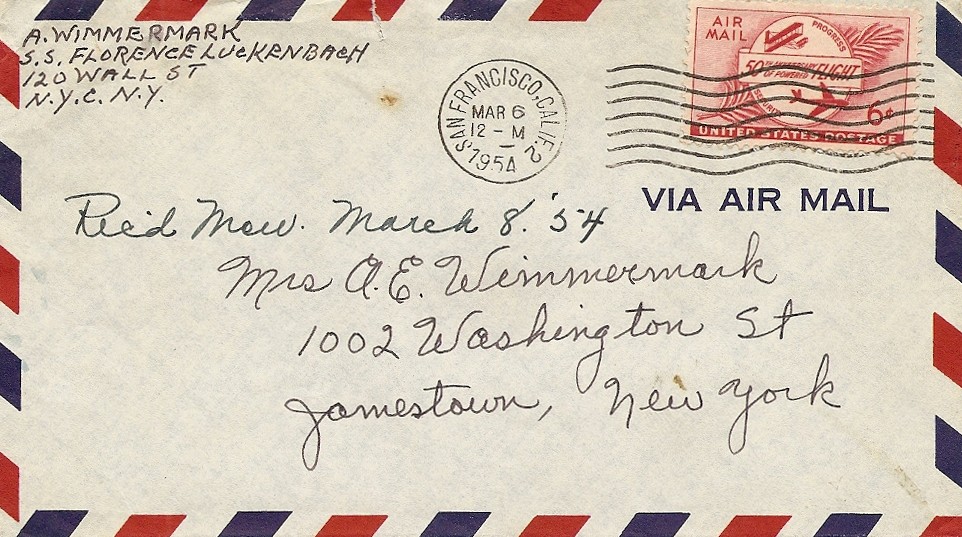 A. WIMMERMARK
S.S. FLORENCE LUCKENBACH
120 WALL ST
N.Y.C. N.Y.
SAN FRANCISCO, CALIF. 2
MAR 6
12 - M
1954
AIR MAIL
PROGRESS
50TH ANNIVERSARY
OF POWERED FLIGHT
SECURITY
6¢
UNITED STATES POSTAGE
VIA AIR MAIL
Rec'd Mon. March 8. '54
Mrs A. E. Wimmermark
1002 Washington St
Jamestown, New York